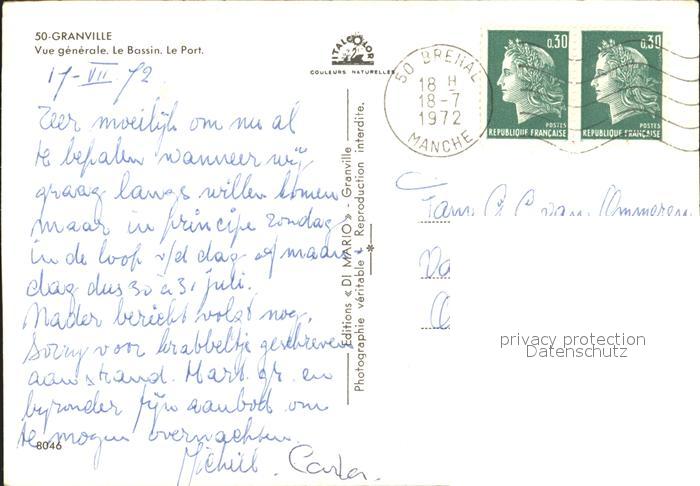 50-GRANVILLE
Vue générale. Le Bassin. Le Port.
ITALCOLOR
COULEURS NATURELLES
17-VII-72
Zeer moeilijk om nu al
te bepalen wanneer wij
graag langs willen komen
maar in principe zondag
in de loop v/d dag of maan
dag dus 30 à 31 juli.
Nader bericht volgt nog.
Sorry voor krabbeltje geschreven
aan strand. Hart. gr. en
bijzonder fijn aanbod om
te mogen overnachten.
Michiel. Carla.
8046
Editions « DI MARIO » - Granville
Photographie véritable * Reproduction interdite.
50 BREHAL
18 H
18-7
1972
MANCHE
0,30
POSTES
REPUBLIQUE FRANÇAISE
0,30
POSTES
REPUBLIQUE FRANÇAISE
Fam. G C van Ommeren
privacy protection
Datenschutz